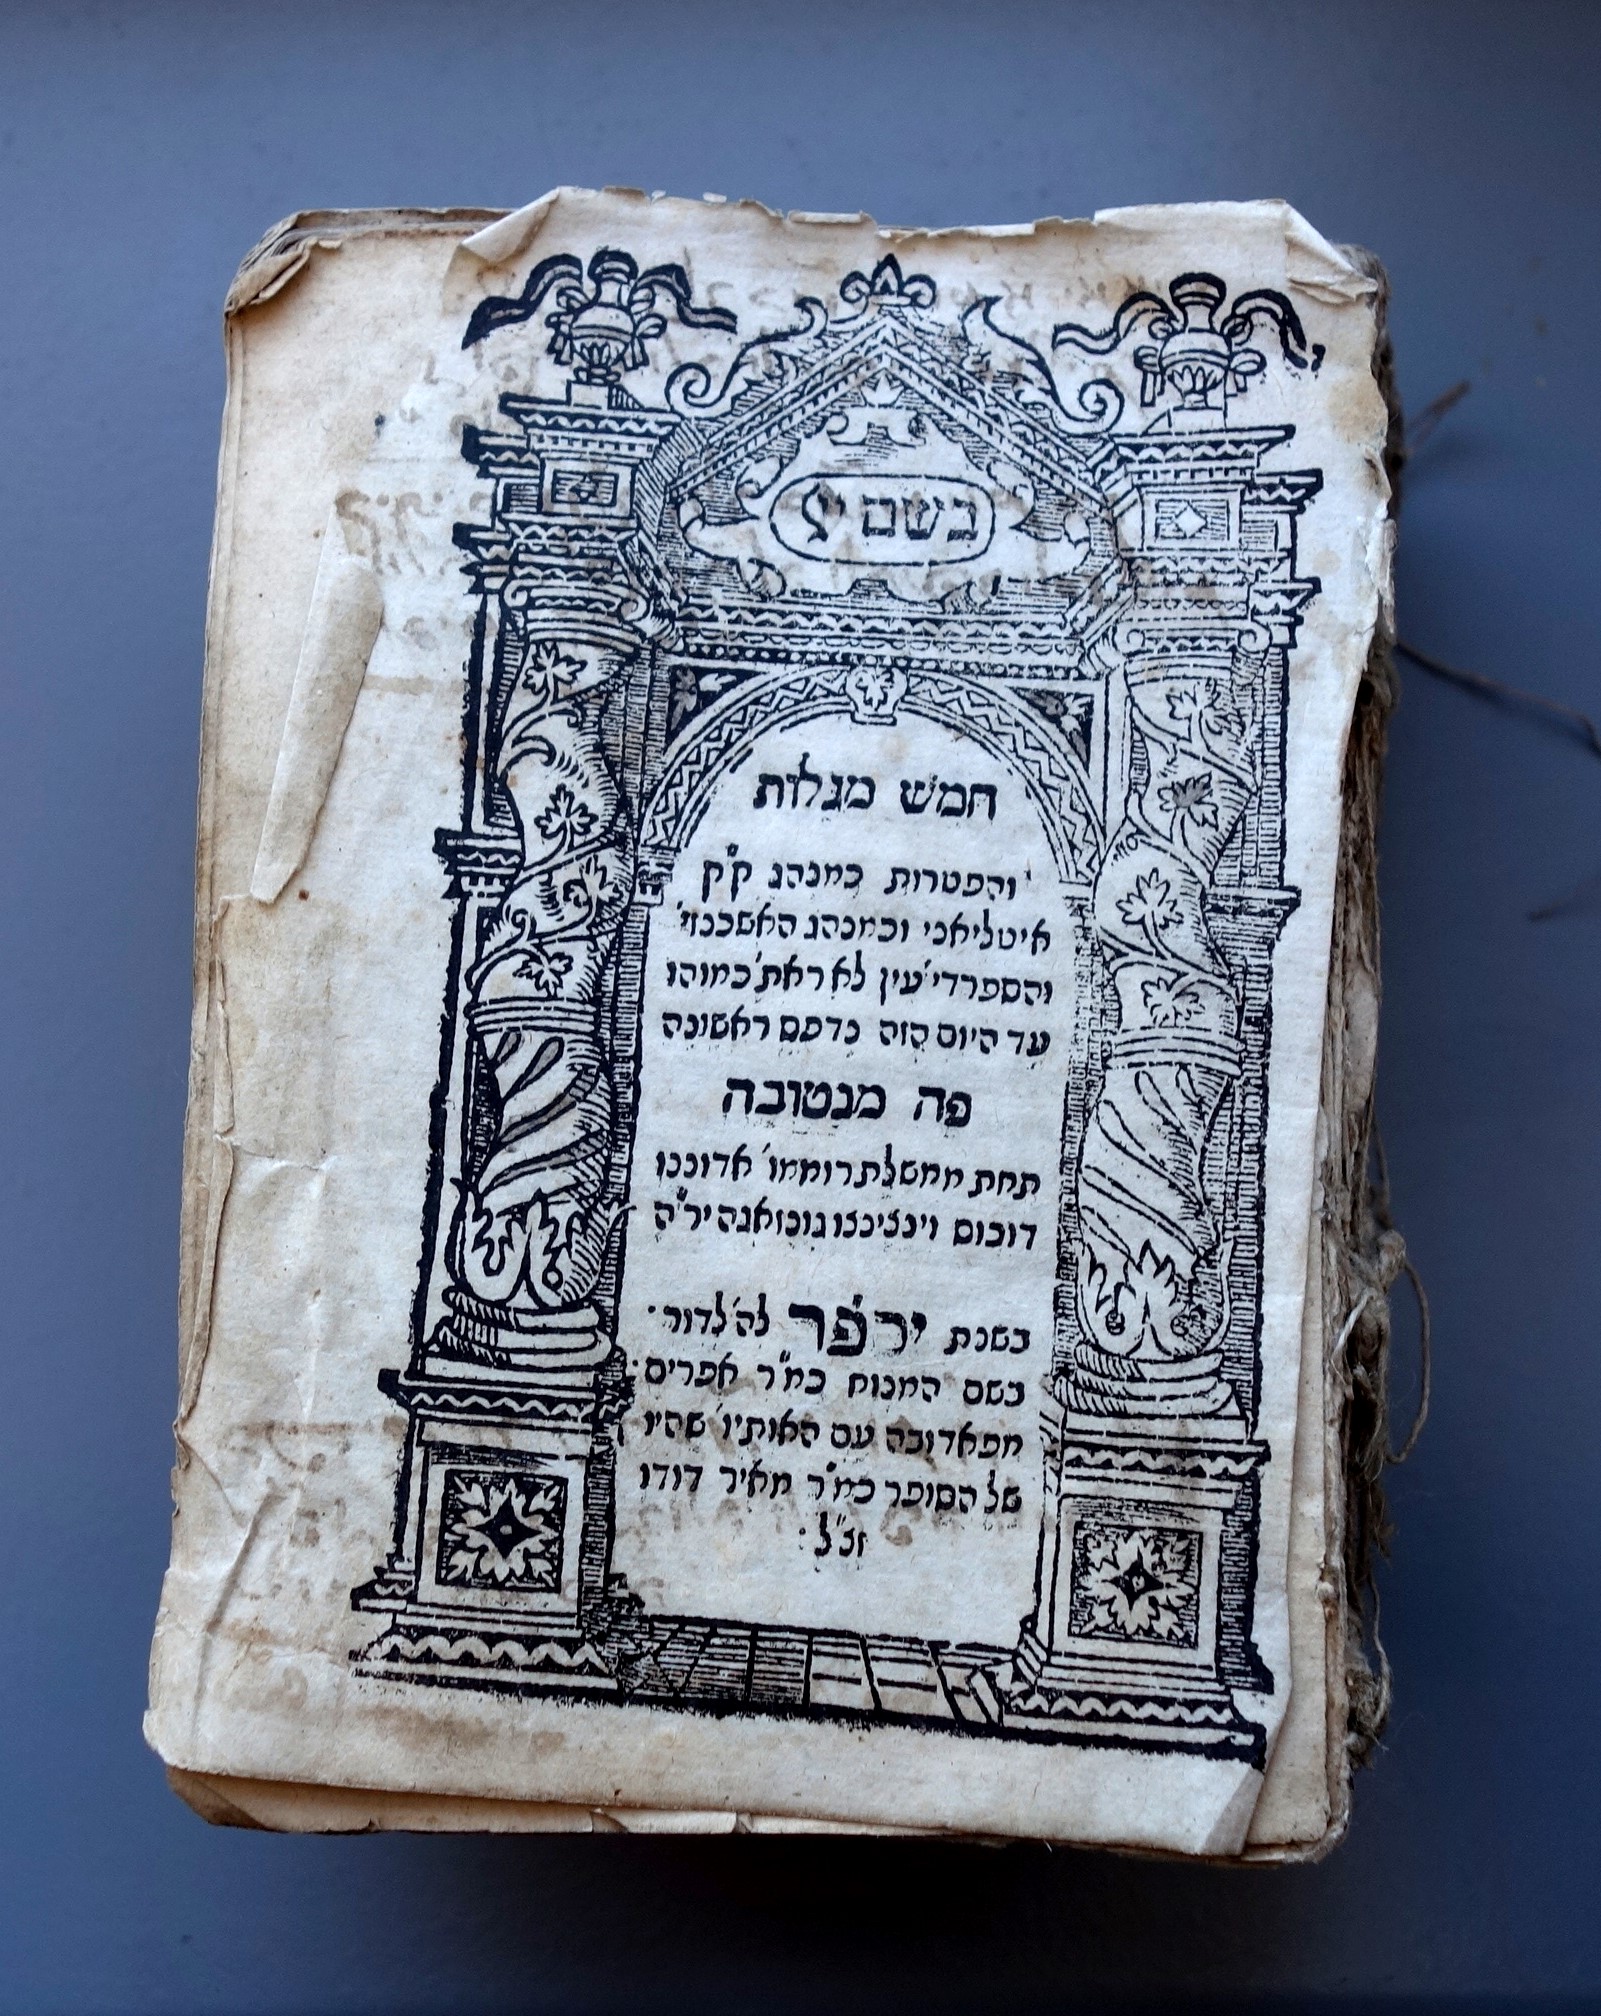 בשם יי
חמש מגלות
והפטרות כמנהג ק"ק
איטליאני וכמנהג האשכנזי'
והספרדי' עין לא ראת' כמוהו
עד היום הזה בדפוס ראשונה
פה מנטובה
תחת ממשלת רוממו' אדוננו
דוכוס וינצינצו גונזאגה יר"ה
בשנת ירפר לה' לדור
בשם המנוח כמ"ר אפרים
מפאדובה עם האותיו' שהיו
של הסופר כמ"ר מאיר דודו
זכ"ל